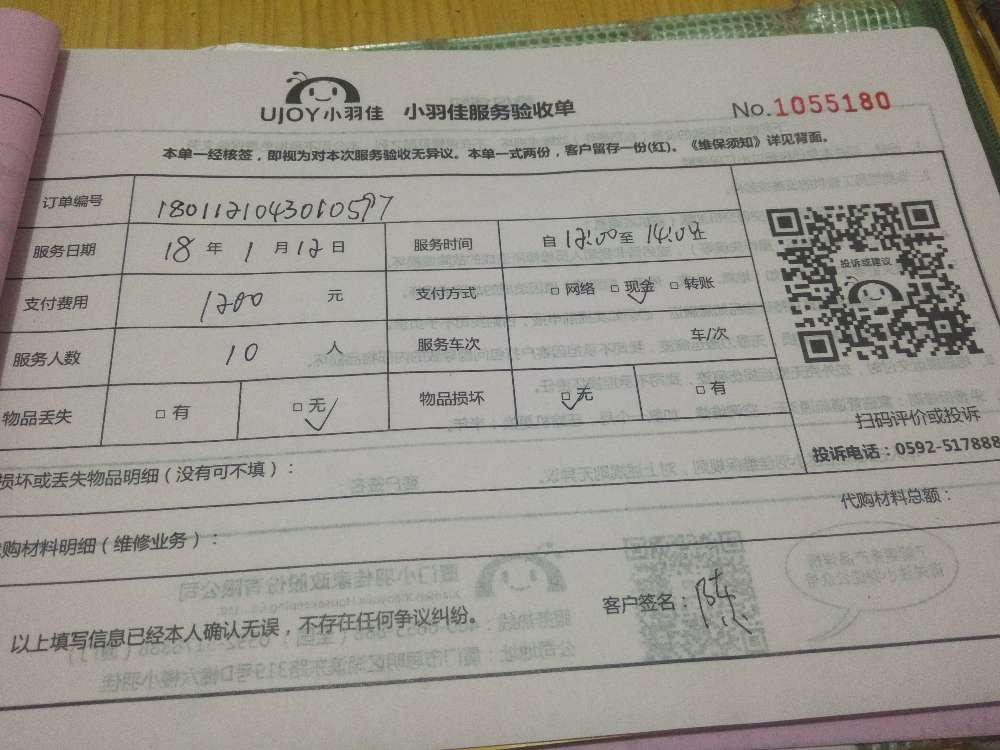 UJOY小羽佳 小羽佳服务验收单 No.1055180
本单一经核签，即视为对本次服务验收无异议。本单一式两份，客户留存一份(红)。《维保须知》详见背面。
订单编号 1801121043010597
服务日期 18 年 1 月 12 日 服务时间 自 12:00 至 14:00 止
支付费用 1200 元 支付方式 □ 网络 □ 现金 ✓ □ 转账
服务人数 10 人 服务车次 车/次
物品丢失 □ 有 □ 无 ✓ 物品损坏 □ 无 ✓ □ 有
投诉或建议
扫码评价或投诉
投诉电话：0592-517888
损坏或丢失物品明细（没有可不填）：
代购材料总额：
购材料明细（维修业务）：
以上填写信息已经本人确认无误，不存在任何争议纠纷。 客户签名：